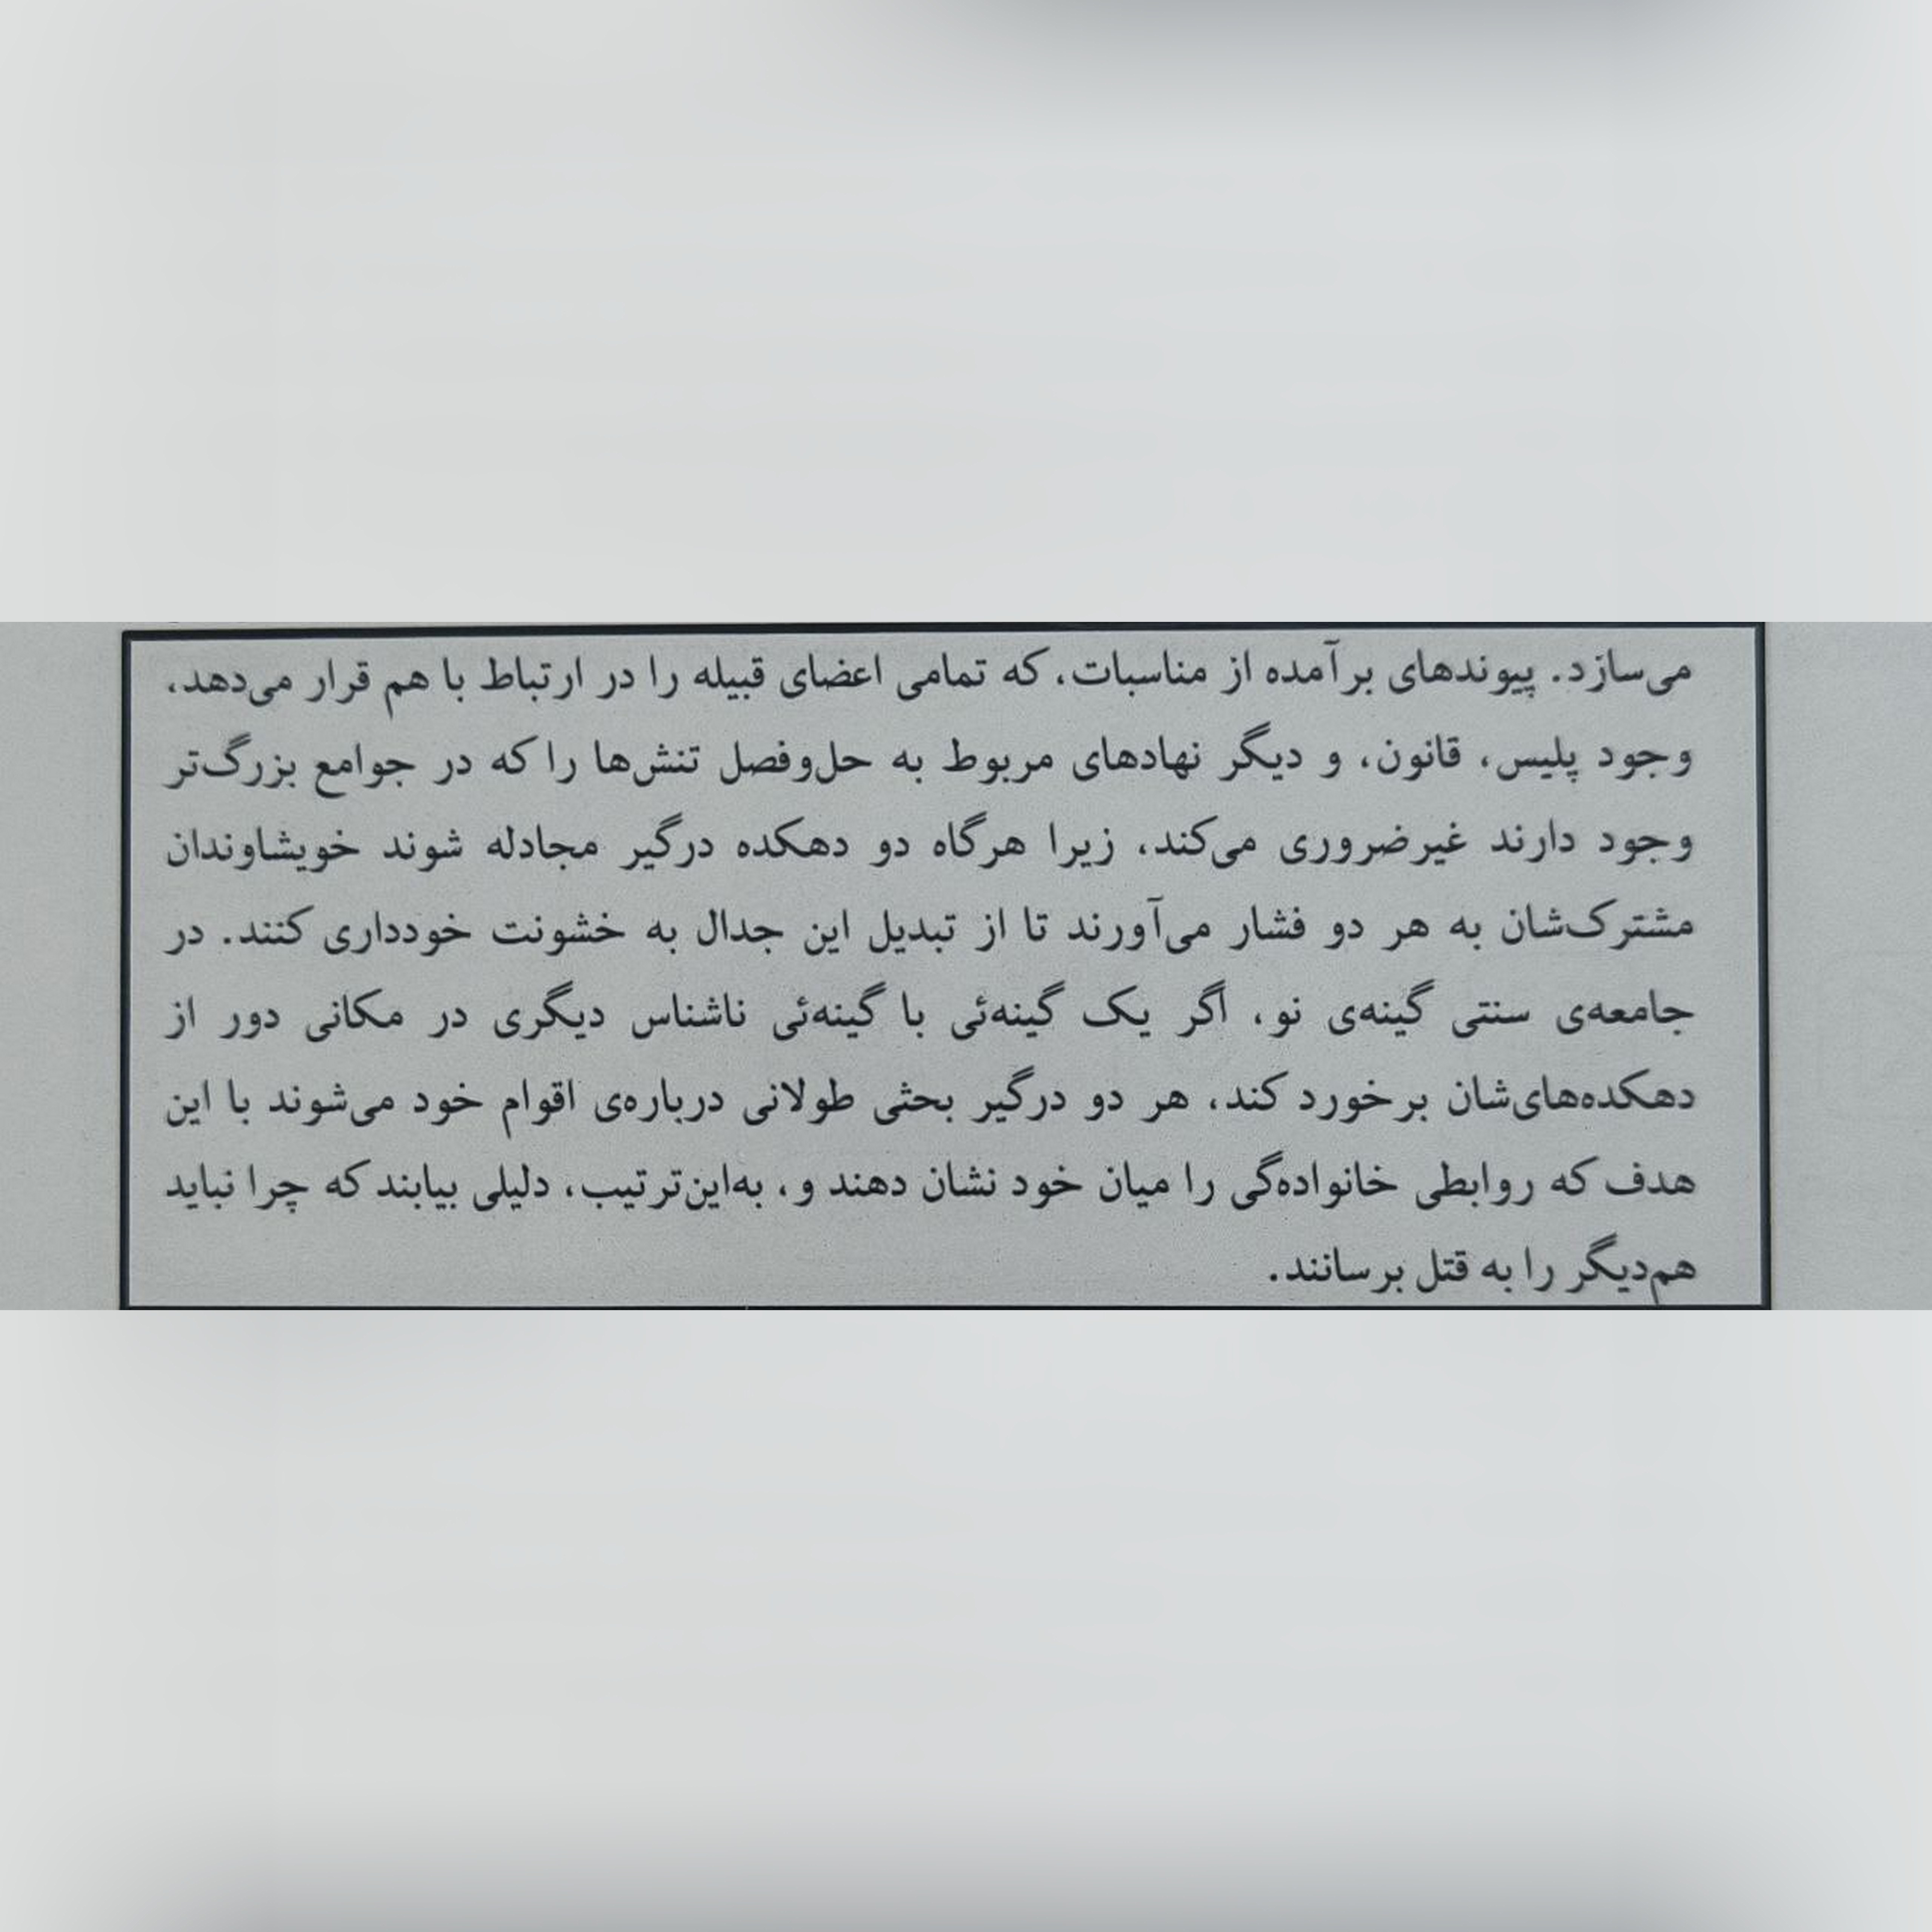 می‌سازد. پیوندهای برآمده از مناسبات، که تمامی اعضای قبیله را در ارتباط با هم قرار می‌دهد،
وجود پلیس، قانون، و دیگر نهادهای مربوط به حل‌وفصل تنش‌ها را که در جوامع بزرگ‌تر
وجود دارند غیرضروری می‌کند، زیرا هرگاه دو دهکده درگیر مجادله شوند خویشاوندان
مشترک‌شان به هر دو فشار می‌آورند تا از تبدیل این جدال به خشونت خودداری کنند. در
جامعه‌ی سنتی گینه‌ی نو، اگر یک گینه‌ئی با گینه‌ئی ناشناس دیگری در مکانی دور از
دهکده‌های‌شان برخورد کند، هر دو درگیر بحثی طولانی درباره‌ی اقوام خود می‌شوند با این
هدف که روابطی خانواده‌گی را میان خود نشان دهند و، به‌این‌ترتیب، دلیلی بیابند که چرا نباید
هم‌دیگر را به قتل برسانند.